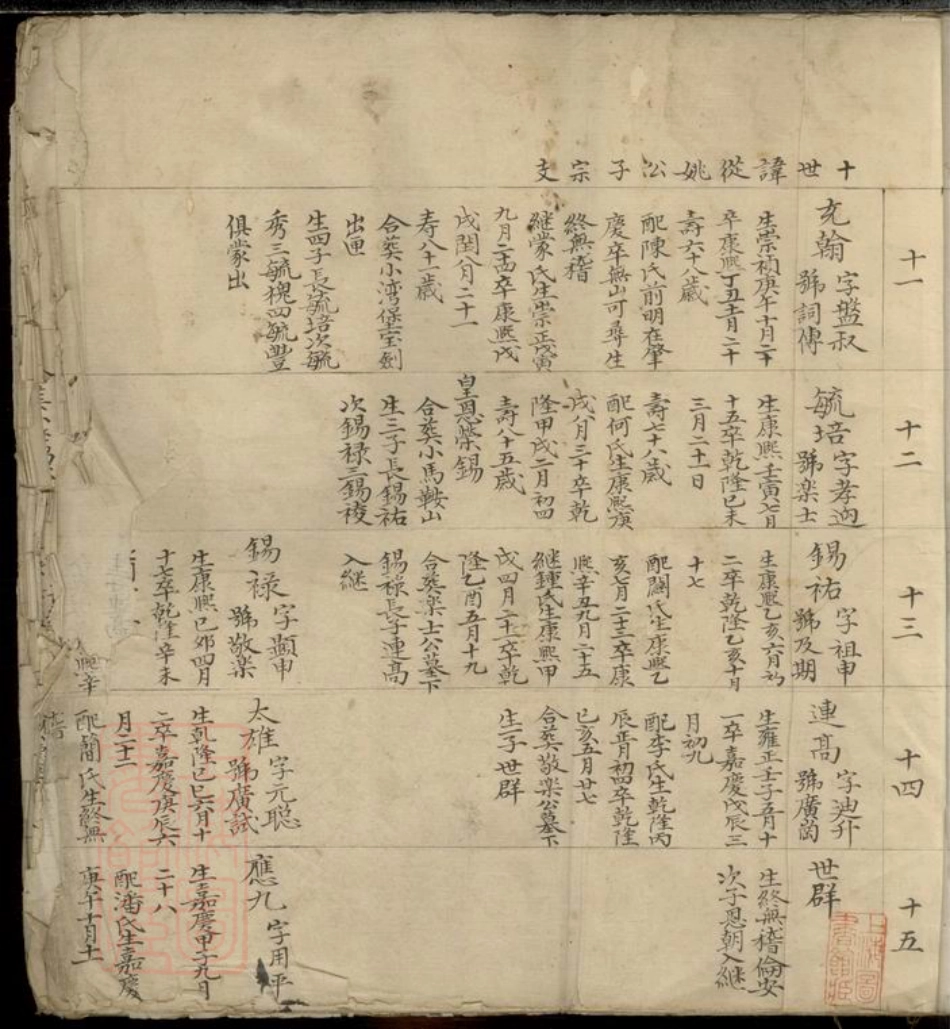 十世諱從姚㳂子宗支
十一
玄翰
字盤叔
號詞傳
生崇禎庚午十月二十
卒康熙丁丑十一月二十
壽六十八歲
配陳氏前明在肇
慶卒無山可尋生
終無稽
継蒙氏生崇正戊寅
九月二十四卒康熙戊
戌閏八月二十一
寿八十一歲
合葬小湾堡宝剑
出匣
生四子長毓培次毓
秀三毓槐四毓豐
俱蒙出
十二
毓培
字孝迥
號楽士
生康熙壬寅七月
十五卒乾隆己未
三月二十一日
壽七十八歲
配何氏生康熙庚
戌八月三十卒乾
隆甲戌二月初四
壽八十五歲
皇恩榮錫
合葬小馬鞍山
生三子長錫祐
次錫禄三錫祾
十三
錫祐
字祖申
號及期
生康熙乙亥六月初
二卒乾隆乙亥十月
十七
配關氏生康熙乙
亥七月二十三卒康
熙辛丑九月二十五
継鍾氏生康熙甲
戌四月二十二卒乾
隆乙酉五月十九
合葬楽士公墓下
錫禄長子連高
入継
錫禄
字顯申
號敬楽
生康熙己卯四月
十七卒乾隆辛未
熙辛
十四
連高
字廸升
號廣茵
生雍正壬子五月十
一卒嘉慶戊辰三
月初九
配李氏生乾隆丙
辰正月初四卒乾隆
己亥五月廿七
合葬敬楽公墓下
生子世群
太雄
字元聡
號廣試
生乾隆己巳六月十
二卒嘉慶庚辰六
月二十二
配簡氏生終無
稽
十五
世群
生終無稽倫安
次子恩朝入継
應九
字用平
生嘉慶甲子九月
二十八
配潘氏生嘉慶
庚午十月十二
上海圖
書館藏